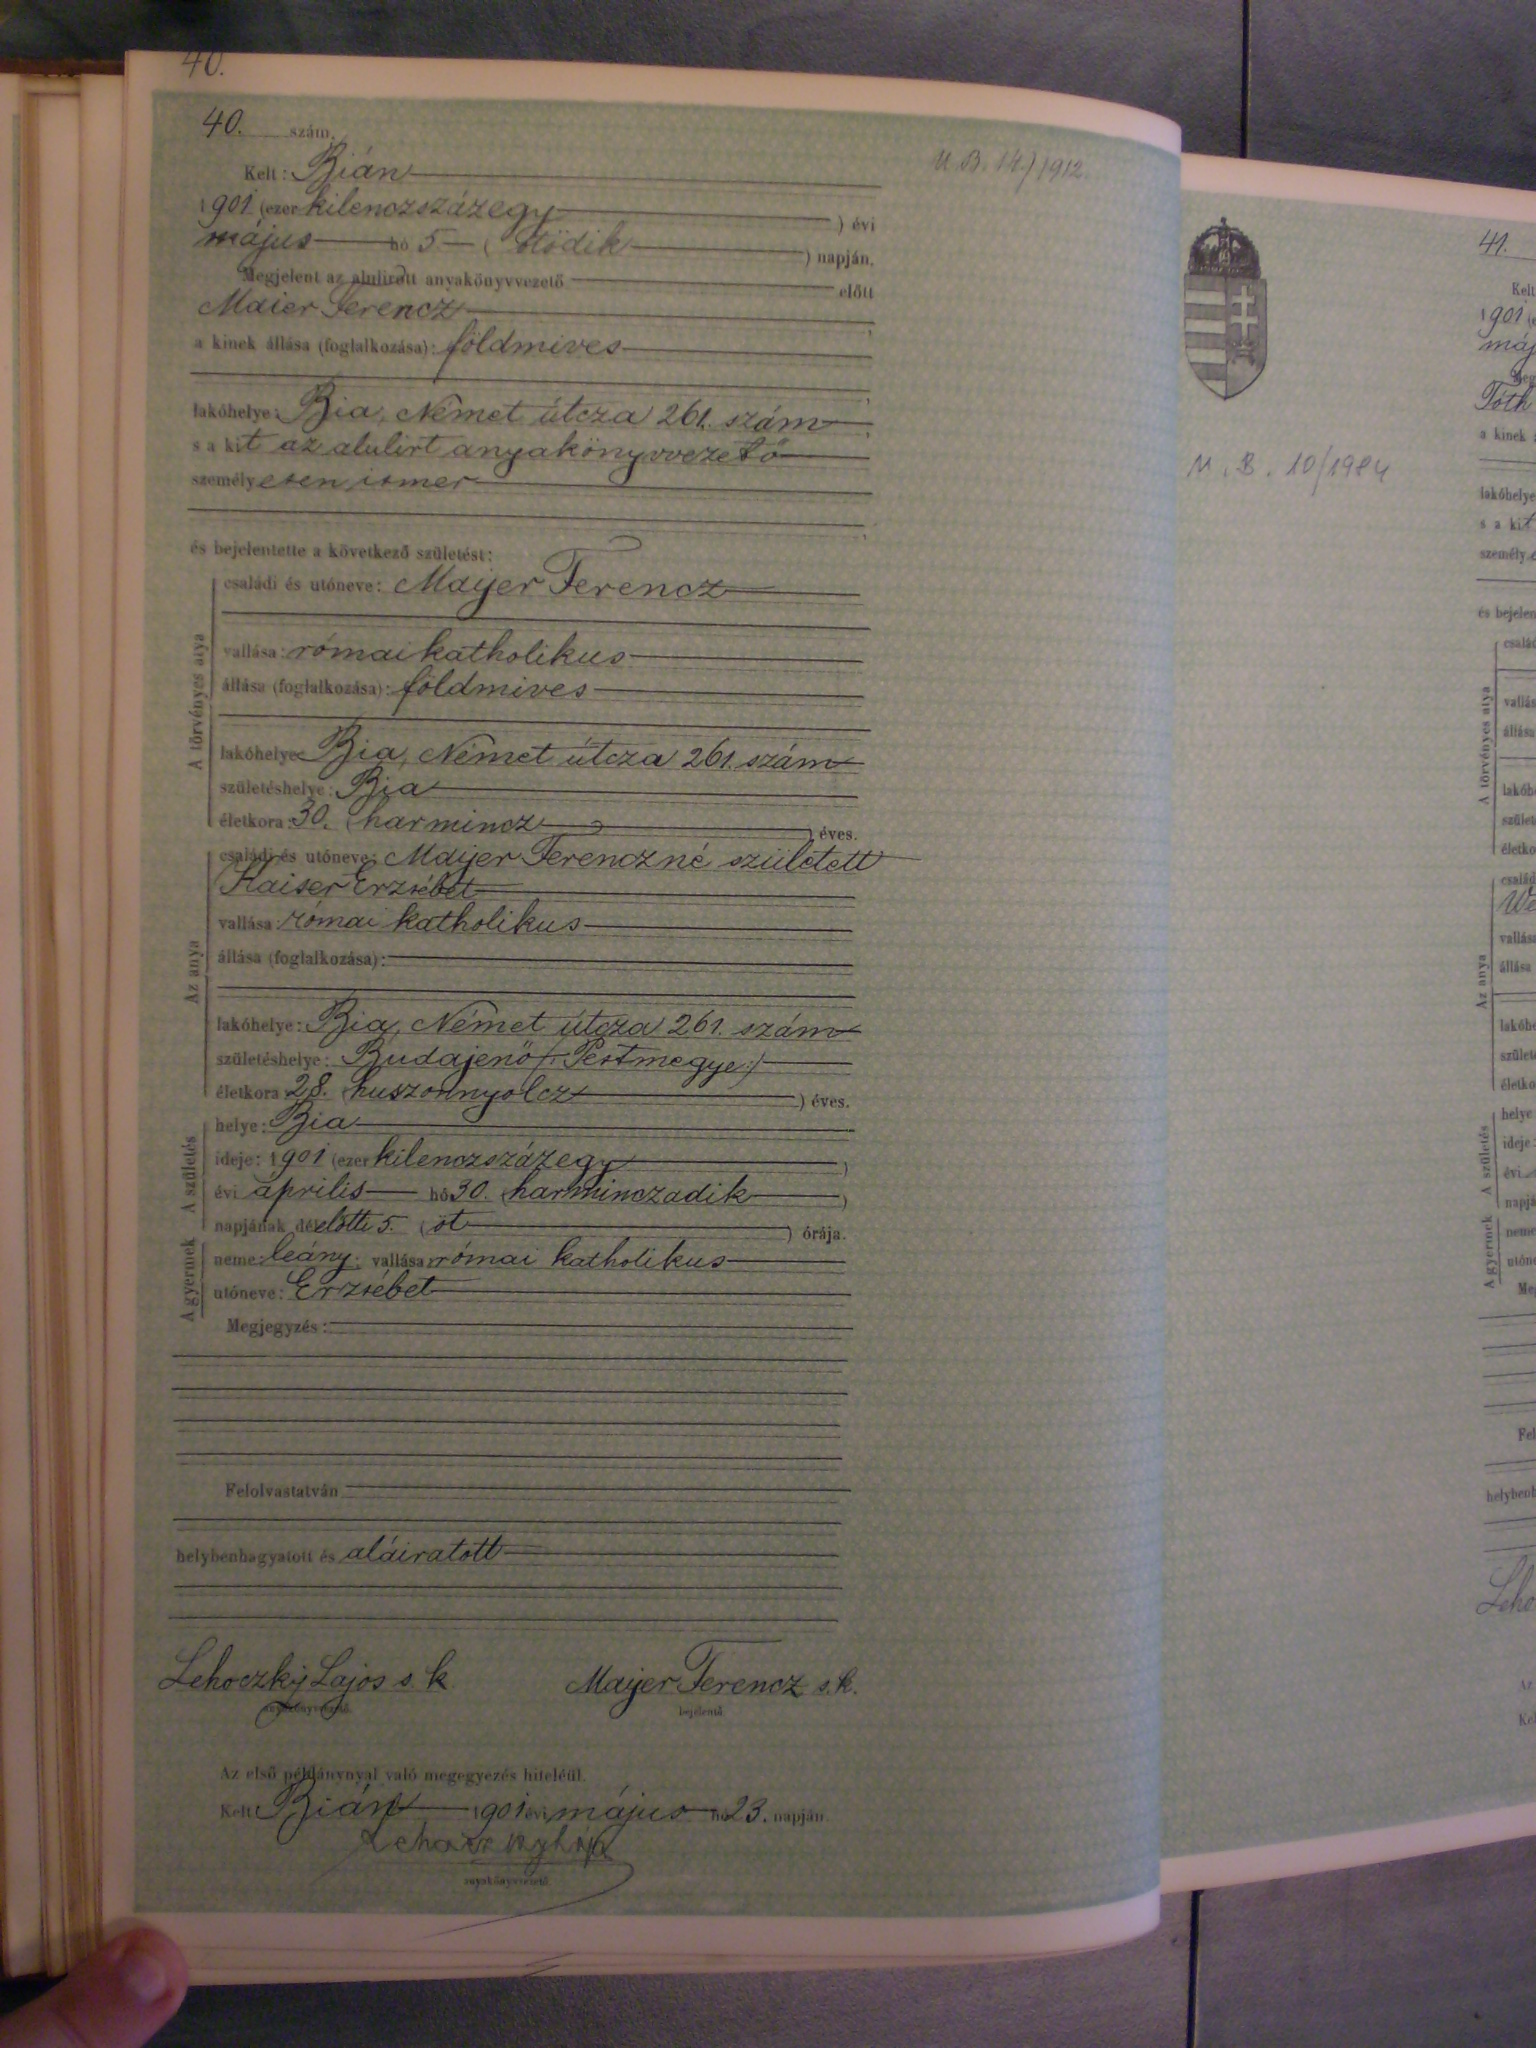 40.
40. szám.
U. B. 14/1912.
Kelt: Bián
1901 (ezer kilenczszázegy) évi
május hó 5 (ötödik) napján.
Megjelent az alulirott anyakönyvvezető előtt
Maier Ferencz
a kinek állása (foglalkozása): földmives
lakóhelye: Bia, Német útcza 261. szám
s a kit az alulirt anyakönyvvezető
személyesen ismer
és bejelentette a következő születést:
A törvényes atya
családi és utóneve: Maijer Ferencz
vallása: római katholikus
állása (foglalkozása): földmives
lakóhelye: Bia, Német útcza 261. szám
születéshelye: Bia
életkora: 30. (harmincz) éves.
Az anya
családi és utóneve: Maijer Ferenczné született
Kaiser Erzsébet
vallása: római katholikus
állása (foglalkozása):
lakóhelye: Bia, Német útcza 261. szám
születéshelye: Budajenő /: Pestmegye :/
életkora: 28. (huszonnyolcz) éves.
A születés
helye: Bia
ideje: 1901 (ezer kilenczszázegy)
évi április hó 30. (harminczadik)
napjának délelőtti 5. (öt) órája.
A gyermek
neme: leány; vallása: római katholikus
utóneve: Erzsébet
Megjegyzés:
Felolvastatván
helybenhagyatott és aláiratott
Lehoczky Lajos s. k.
Maijer Ferencz s. k.
anyakönyvvezető.
bejelentő.
Az első példánynyal való megegyezés hiteléül.
Kelt Bián 1901 évi május hó 23. napján
anyakönyvvezető.
41.
Kelt
1901
máj
Tóth
a kinek
U. B. 10/1984
lakóhelye
s a kit
személy
és bejelen
A törvényes atya
család
vallás
állása
lakóh
szület
életko
Az anya
család
We
vallás
állása
lakóhe
szület
életko
A születés
helye
ideje:
évi
napjá
A gyermek
neme
utóne
Meg
Fel
helybenh
Leho
Az
Kel